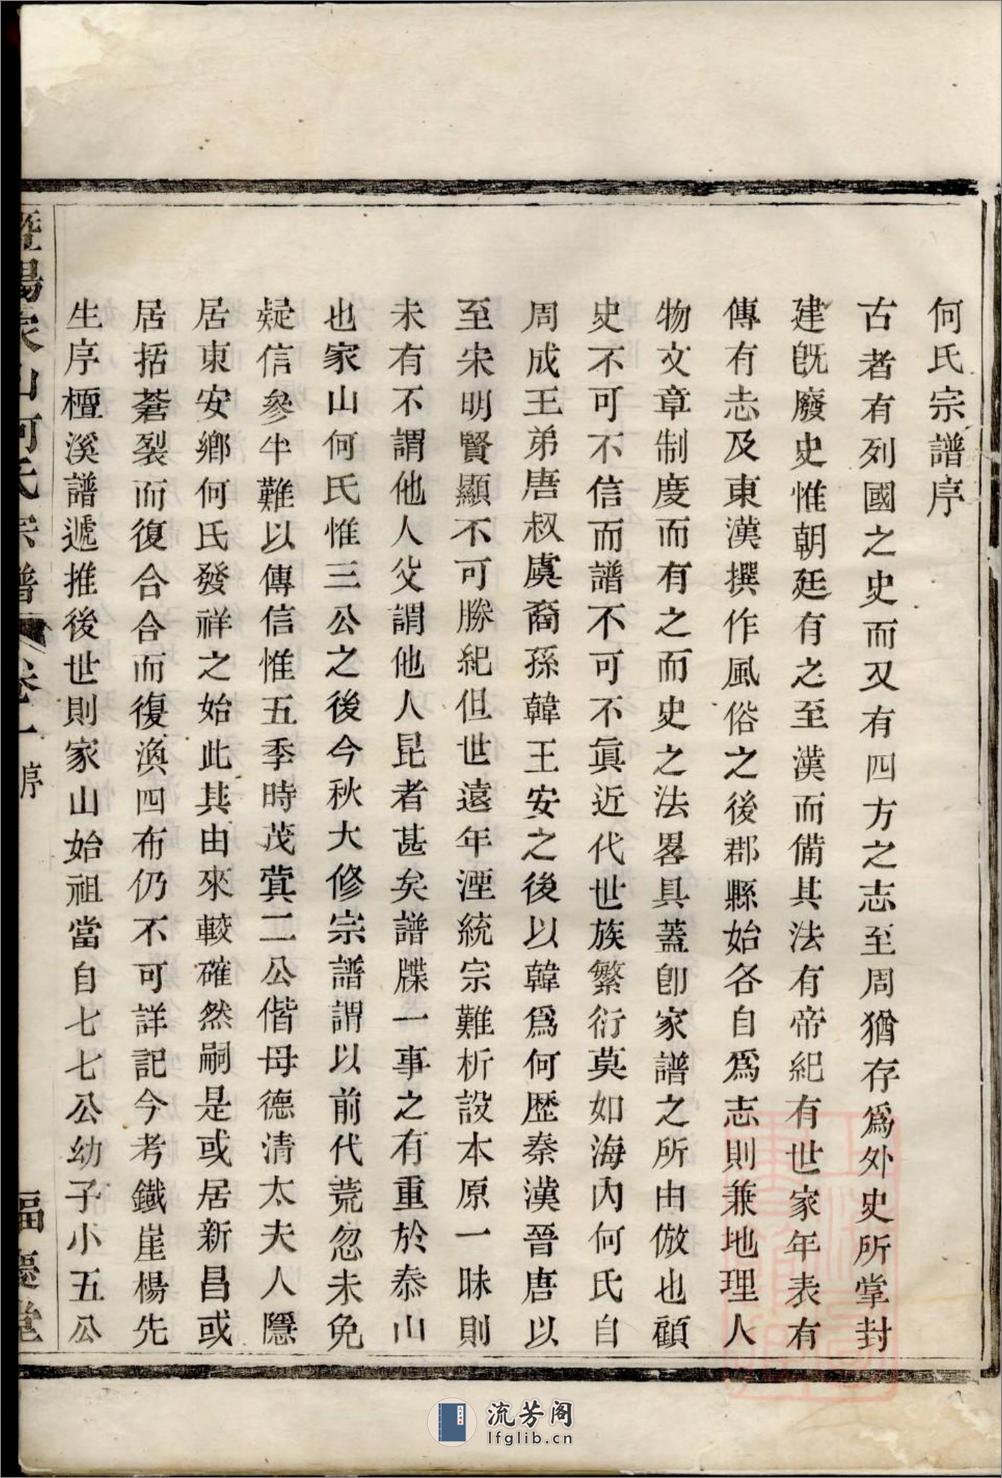 何氏宗譜序
古者有列國之史而又有四方之志至周猶存爲外史所掌封
建旣廢史惟朝廷有之至漢而備其法有帝紀有世家年表有
傳有志及東漢撰作風俗之後郡縣始各自爲志則兼地理人
物文章制度而有之而史之法畧具蓋卽家譜之所由倣也顧
史不可不信而譜不可不眞近代世族繁衍莫如海內何氏自
周成王弟唐叔虞裔孫韓王安之後以韓爲何歷秦漢晉唐以
至宋明賢顯不可勝紀但世遠年湮統宗難析設本原一昧則
未有不謂他人父謂他人昆者甚矣譜牒一事之有重於泰山
也家山何氏惟三公之後今秋大修宗譜謂以前代荒忽未免
疑信參半難以傳信惟五季時茂蓂二公偕母德清太夫人隱
居東安鄉何氏發祥之始此其由來較確然嗣是或居新昌或
居括蒼裂而復合合而復渙四布仍不可詳記今考鐵崖楊先
生序檀溪譜遞推後世則家山始祖當自七七公幼子小五公
暨陽家山何氏宗譜 卷一 序 福慶堂
流芳阁
lfglib.cn